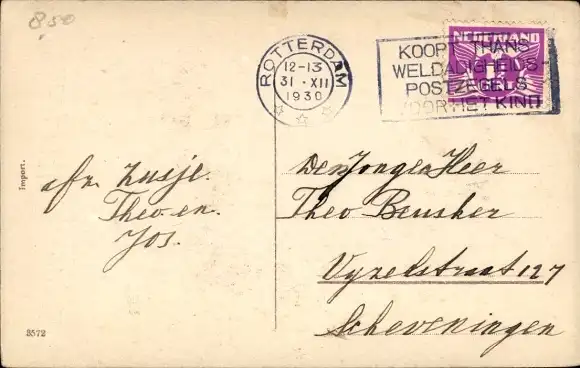 8,50
ROTTERDAM
12-13
31 · XII
1930
KOOPT THANS
WELDADIGHEIDS-
POSTZEGELS
VOOR HET KIND
NEDERLAND
1½
Import.
afz. Zusje.
Theo en.
Jos.
Den Jongen Heer
Theo Beusker
Vyzelstraat 127
Scheveningen
3572